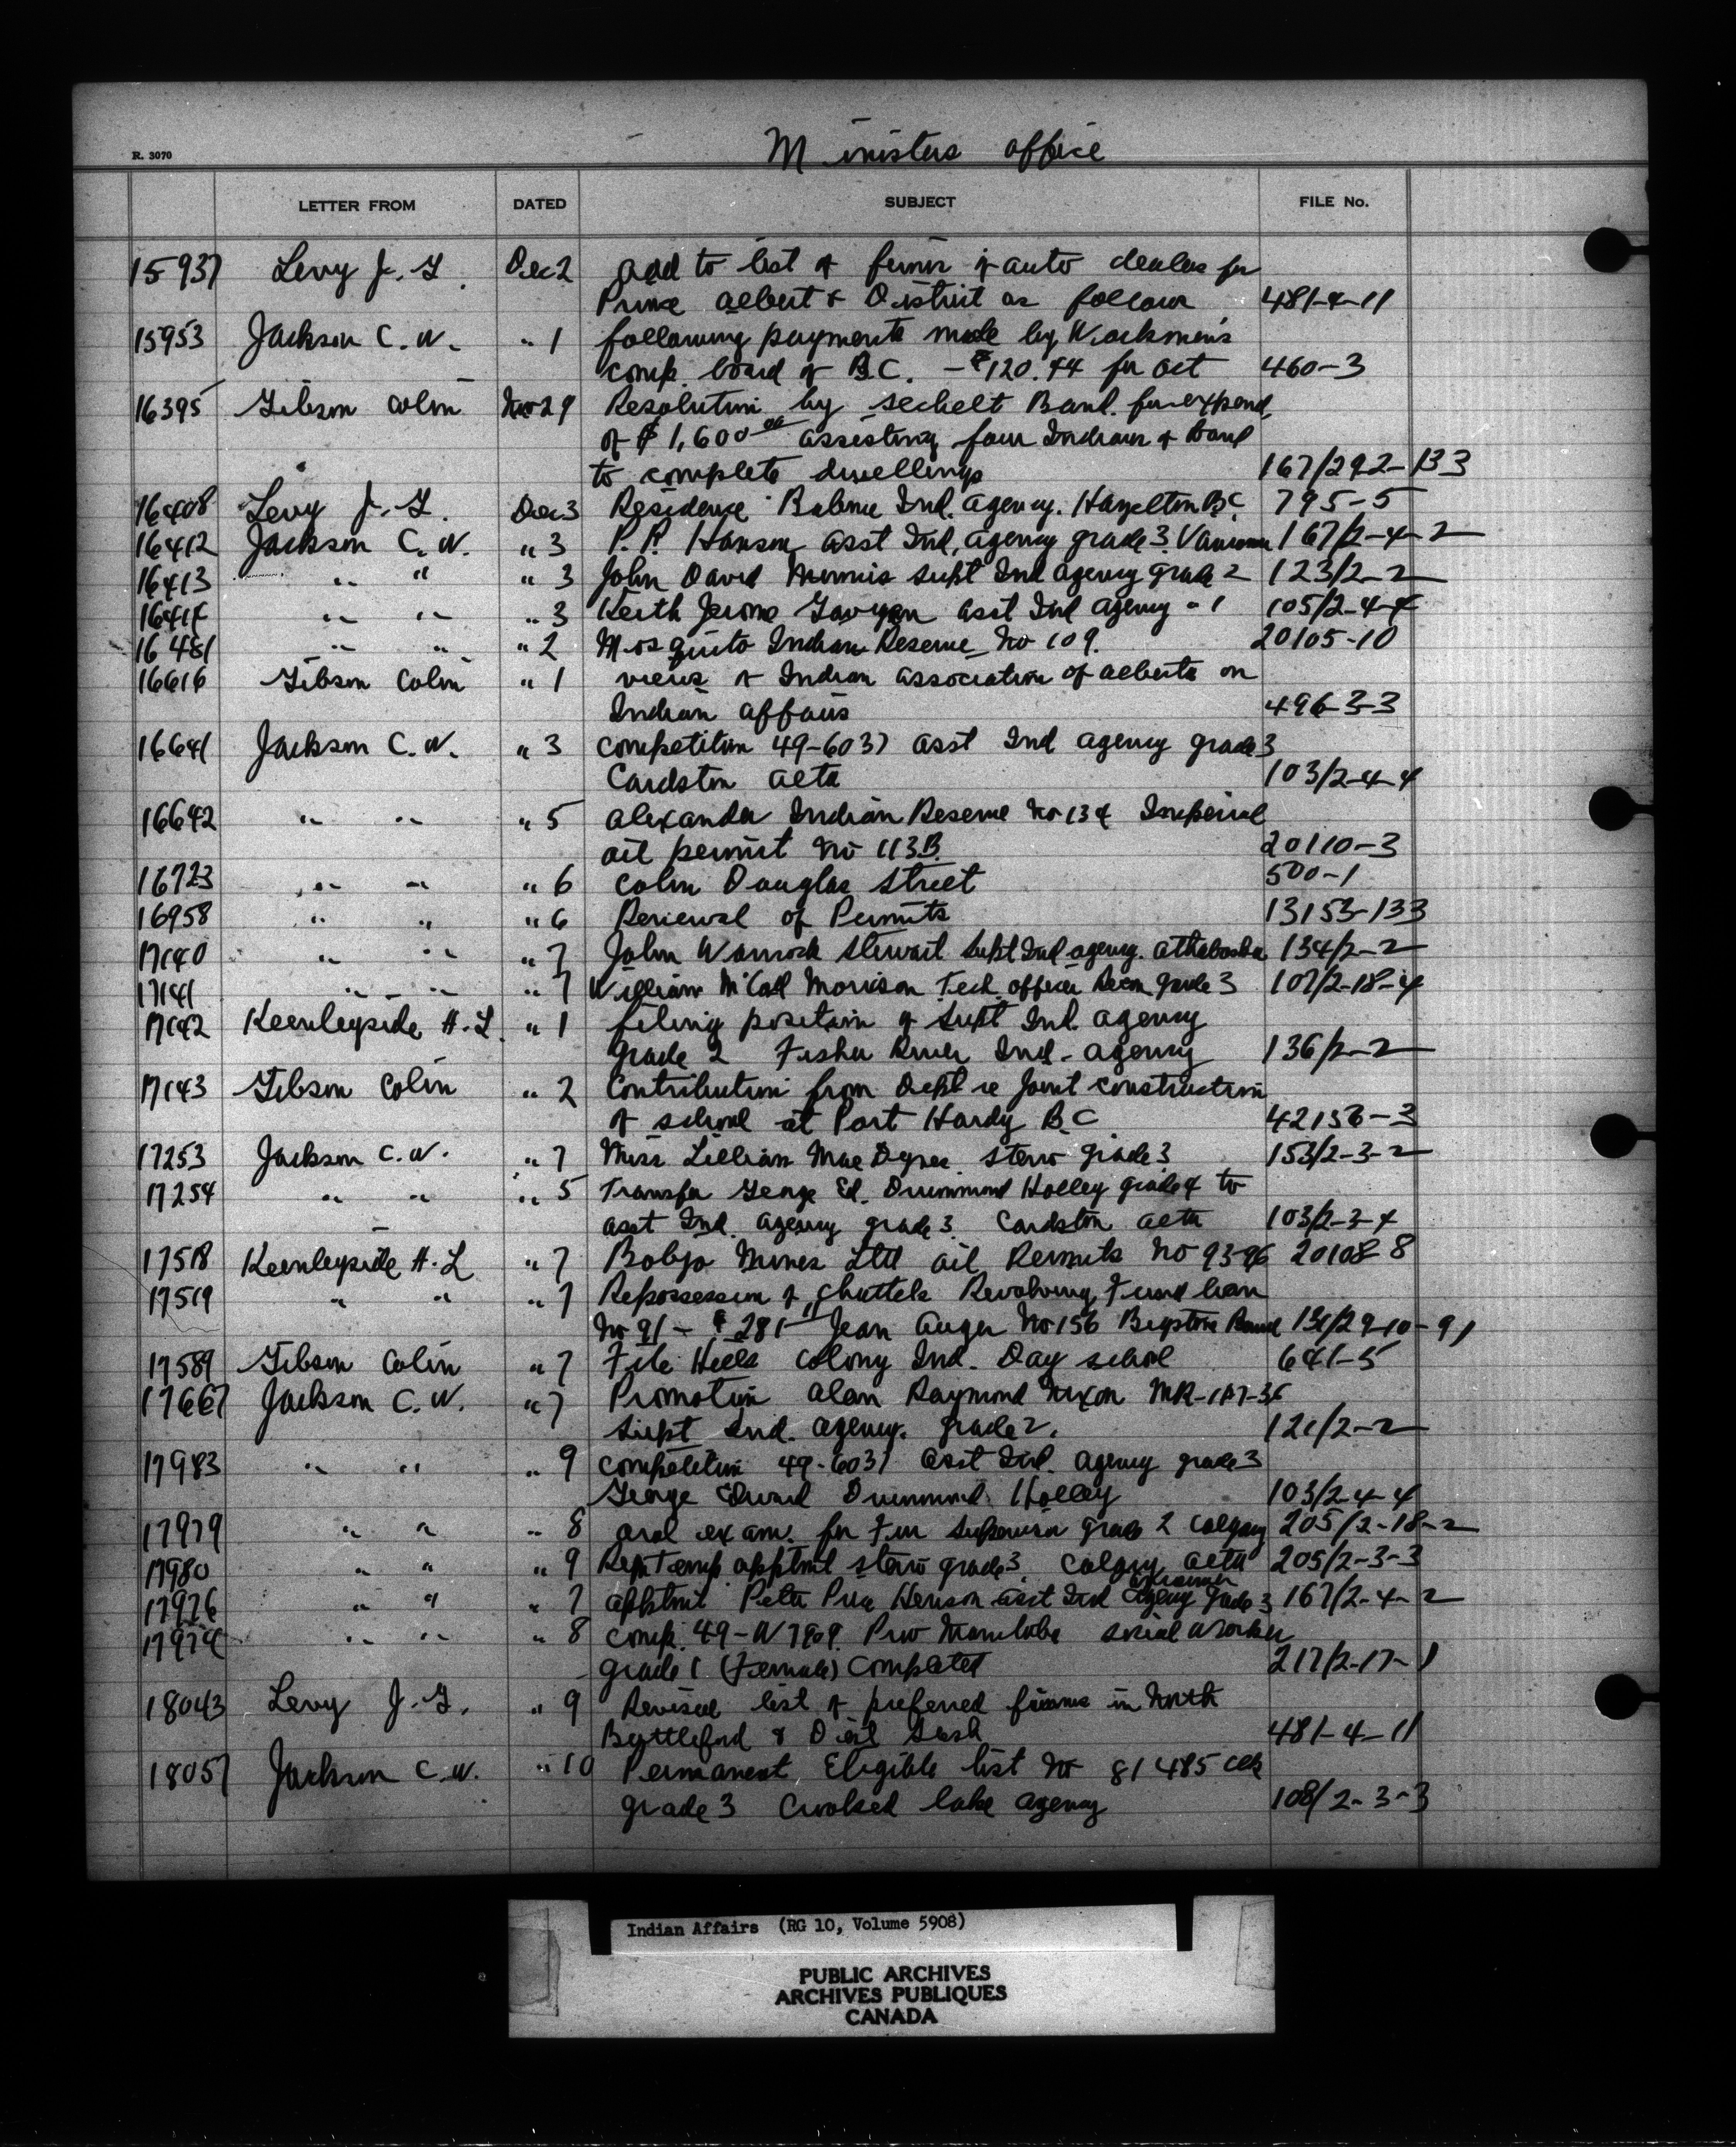 Ministers office
R. 3070
LETTER FROM DATED SUBJECT FILE No.
15937 Levy J. G. Dec 2 add to list of firms of auto dealers for
Prince albert & District as follows 481-4-11
15953 Jackson C. W. " 1 following payments made by Workmen's
comp. board of B.C. - $120.44 for oct 460-3
16395 Gibson Colin Nov 29 Resolution by Sechelt Band. for expend.
of $1,600 00 assisting four Indians of Band
to complete dwellings 167/29-2-133
16408 Levy J. G. Dec 3 Residence Babine Ind. agency. Hazelton B.C. 795-5
16412 Jackson C. W. " 3 P. P. Hanson asst Ind. agency grade 3. Vancouver 167/2-4-2
16413 " " " 3 John David supt Ind agency grade 2 123/2-2
16414 " " " 3 Keith Jerome asst Ind agency - 1 105/2-4-4
16481 " " " 2 Mosquito Indian Reserve No 109. 20105-10
16616 Gibson Colin " 1 views of Indian association of alberta on
Indian affairs 496-3-3
16641 Jackson C. W. " 3 competition 49-6037 asst Ind agency grade 3
Cardston alta 103/2-4-4
16642 " " " 5 alexander Indian Reserve No 134 Imperial
oil permit No 113B. 20110-3
16723 " " " 6 Colin Douglas Street 500-1
16958 " " " 6 Renewal of Permits 13153-133
17140 " " " 7 John Warnock Stewart Supt Ind agency. athabaska 134/2-2
17141 " " " 7 William McCall Morrison Tech. officer grade 3 107/2-18-4
17142 Keenleyside H. L. " 1 filing position of Supt Ind. agency
grade 2 Fisher River Ind- agency 136/2-2
17143 Gibson Colin " 2 Contribution from Dept re joint construction
of school at Port Hardy B.C 42136-3
17253 Jackson C. W. " 7 Miss Lillian Mae steno grade 3 153/2-3-2
17254 " " " 5 Transfer George Ed. Drummond Holley grade 4 to
asst Ind. agency grade 3. Cardston alta 103/2-3-4
17518 Keenleyside H. L " 7 Bobjo Mines Ltd oil Permits No 93-96 20108-8
17519 " " " 7 Repossession of chattels Revolving Fund loan
No 91 - $281 Jean Auger No 156 Bigstone Band 131/29-10-91
17589 Gibson Colin " 7 File Hills Colony Ind. Day school 641-5
17667 Jackson C. W. " 7 Promotion alan Raymond Nixon
Supt Ind. agency. grade 2. 121/2-2
17983 " " " 9 competition 49-6037 asst Ind. agency grade 3
George Edward Drummond Holley 103/2-4-4
17979 " " " 8 oral exam. for Fur Supervisor grade 2 Calgary 205/2-18-2
17980 " " " 9 Rep Temp apptmt steno grade 3. Calgary alta 205/2-3-3
Vancouver
17976 " " " 7 apptmt Peter asst Ind agency grade 3 167/2-4-2
17974 " " " 8 comp. 49-W 7909. Prov Manitoba social worker
grade 1 (Female) completed 217/2-17-1
18043 Levy J. G. " 9 Revised list of preferred firms in North
Battleford & Dist Sask 481-4-11
18057 Jackson C. W. " 10 Permanent Eligible list No 81485 clk
grade 3 Crooked lake agency 108/2-3-3
Indian Affairs (RG 10, Volume 5908)
PUBLIC ARCHIVES
ARCHIVES PUBLIQUES
CANADA